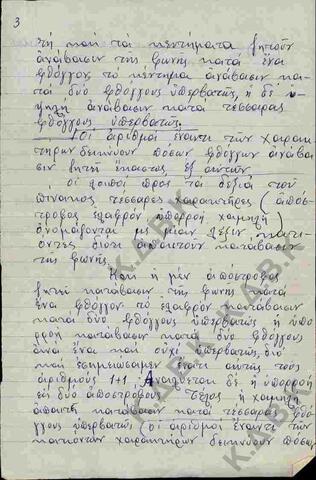 3
τή καί τά κεντήματα ζητοῦν
ἀνάβασιν τῆς φωνῆς κατά ἕνα
φθόγγον, τό κέντημα ἀνάβασιν κα-
τά δύο φθόγγους ὑπερβατῶς, ἡ δέ ὑ-
ψηλή ἀνάβασιν κατά τέσσαρας
φθόγγους ὑπερβατῶς.
(Οἱ ἀριθμοί ἔναντι τῶν χαρακ-
τήρων δεικνύουν πόσων φθόγγων ἀνάβα-
σιν ζητεῖ ἕκαστος ἐξ αὐτῶν
οἱ λοιποί πρός τά δεξιά τοῦ
πίνακος τέσσαρες χαρακτῆρες (ἀπόσ-
τροφος ἐλαφρόν ὑπορροή χαμηλή)
ὀνομάζονται μέ μίαν λέξιν κατι-
όντες διότι ἀπαιτοῦν κατάβασιν
τῆς φωνῆς.
Καί ἡ μέν ἀπόστροφος
ζητεῖ κατάβασιν τῆς φωνῆς κατά
ἕνα φθόγγον τό ἐλαφρόν κατάβασιν
κατά δύο φθόγγους ὑπερβατῶς ἡ ὑπορ-
ροή κατάβασιν κατά δύο φθόγγους
ἕνα ἕνα καί οὐχί ὑπερβατῶς, διό
καί ἐσημειώσαμεν ἔναντι αὐτῆς τούς
ἀριθμούς 1+1 Ἀναλύεται δέ ἡ ὑπορροή
εἰς δύο ἀποστρόφους Τέλος ἡ χαμηλή
ἀπαιτεῖ κατάβασιν κατά τέσσαρας φθό-
γγους ὑπερβατῶς (οἱ ἀριθμοί ἔναντι τῶν
κατιόντων χαρακτήρων δεικνύουν πόσων
Κ.Δ.Β.Κ
Κ.Δ.Β.Κ
Κ.Δ.Β.Κ